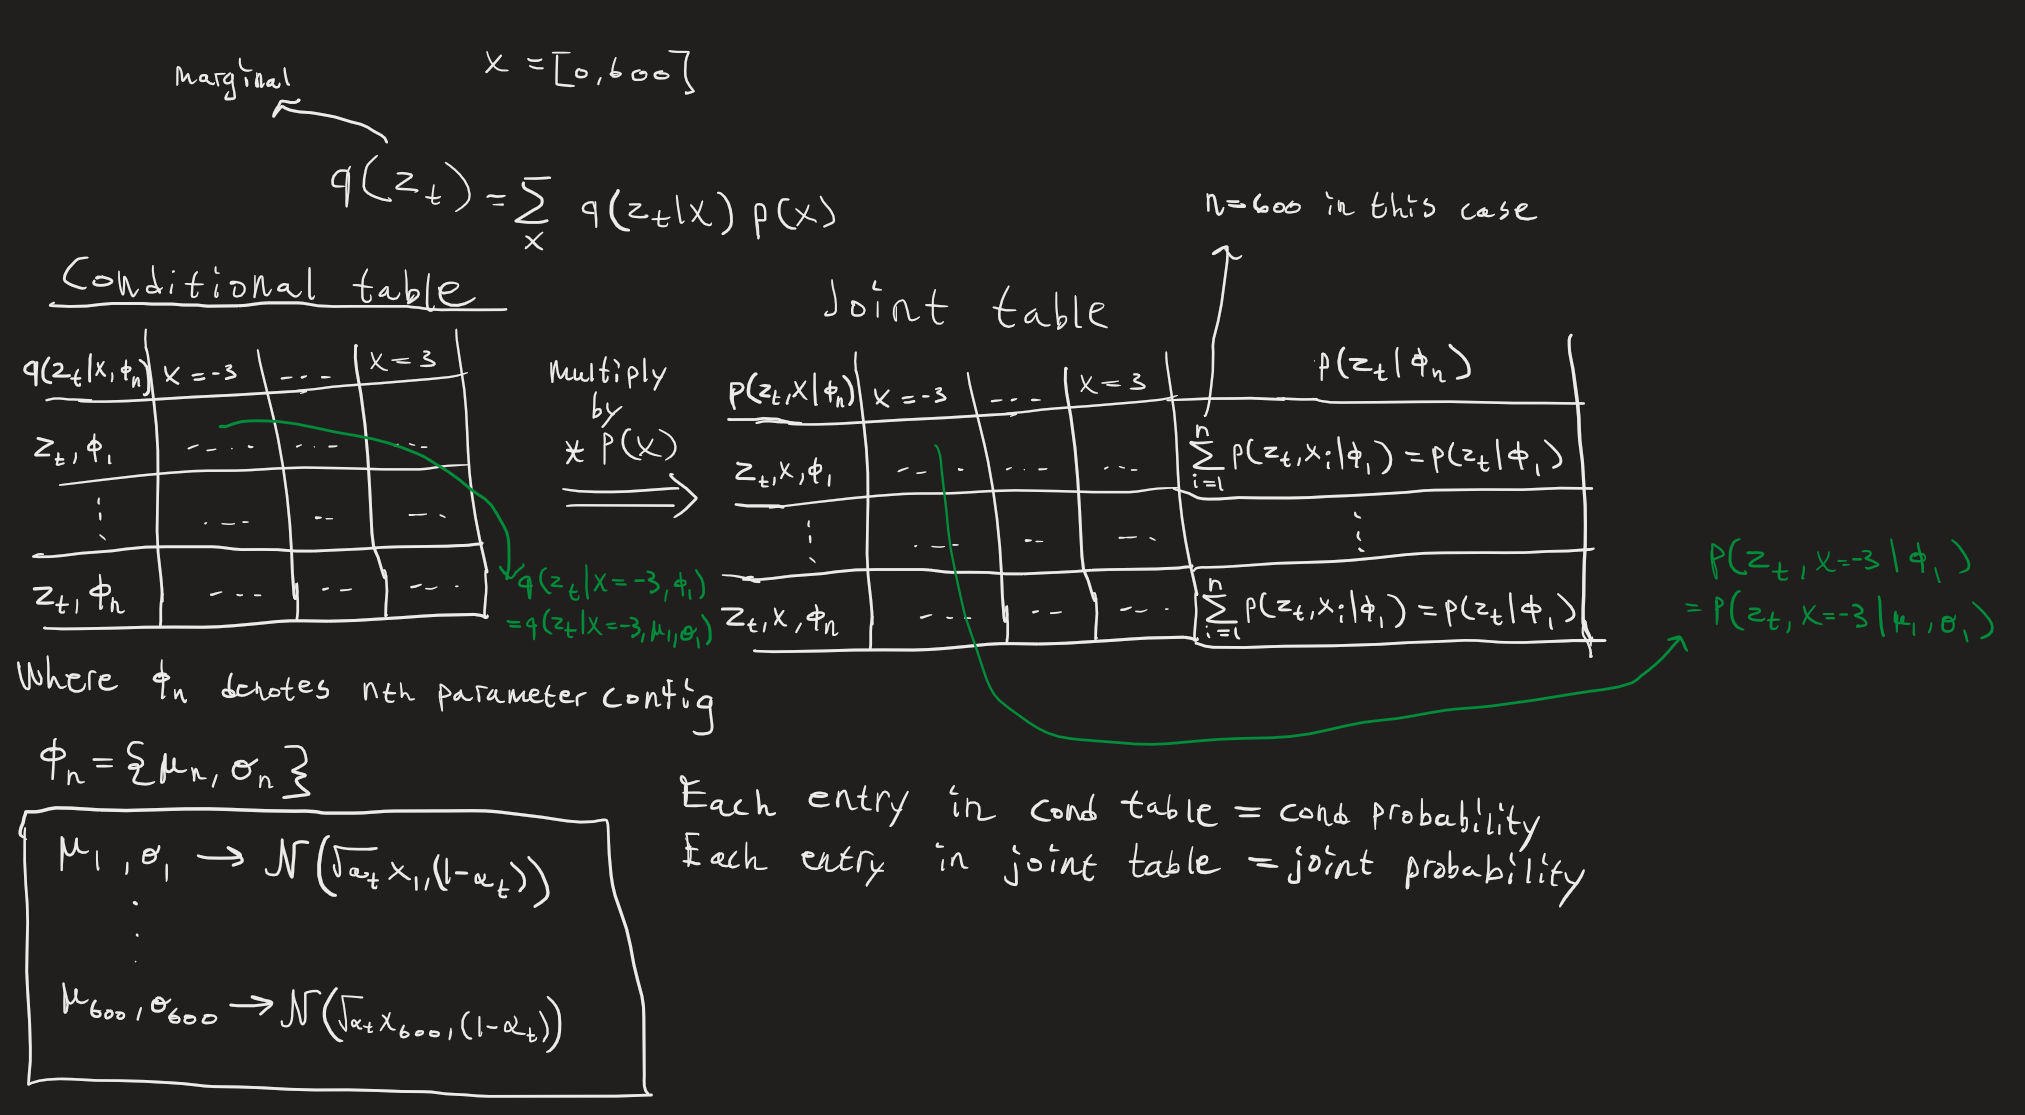 marginal
x = [0,600]
q(z_t) = Σ_x q(z_t|x) p(x)
n=600 in this case
Conditional table
q(z_t|x, ϕ_n) x = -3 --- x = 3
z_t, ϕ_1 -- -- -- -- ---
⋮ ---- -- -- -
z_t, ϕ_n --- -- ---
multiply
by
* P(x)
q(z_t|x=-3, ϕ_1)
=q(z_t|x=-3, μ_1, σ_1)
Joint table
p(z_t, x|ϕ_n) x = -3 --- x = 3 p(z_t|ϕ_n)
z_t, x, ϕ_1 -- -- -- -- --- Σ_{i=1}^n p(z_t, x_i|ϕ_1) = p(z_t|ϕ_1)
⋮ ---- -- -- - ⋮
z_t, x, ϕ_n --- -- --- Σ_{i=1}^n p(z_t, x_i|ϕ_1) = p(z_t|ϕ_1)
P(z_t, x=-3|ϕ_1)
= P(z_t, x=-3|μ_1, σ_1)
Where ϕ_n denotes nth parameter config
ϕ_n = {μ_n, σ_n}
μ_1, σ_1 → N(√α_t x_1, (1-α_t))
⋮
μ_600, σ_600 → N(√α_t x_600, (1-α_t))
Each entry in cond table = cond probability
Each entry in joint table = joint probability